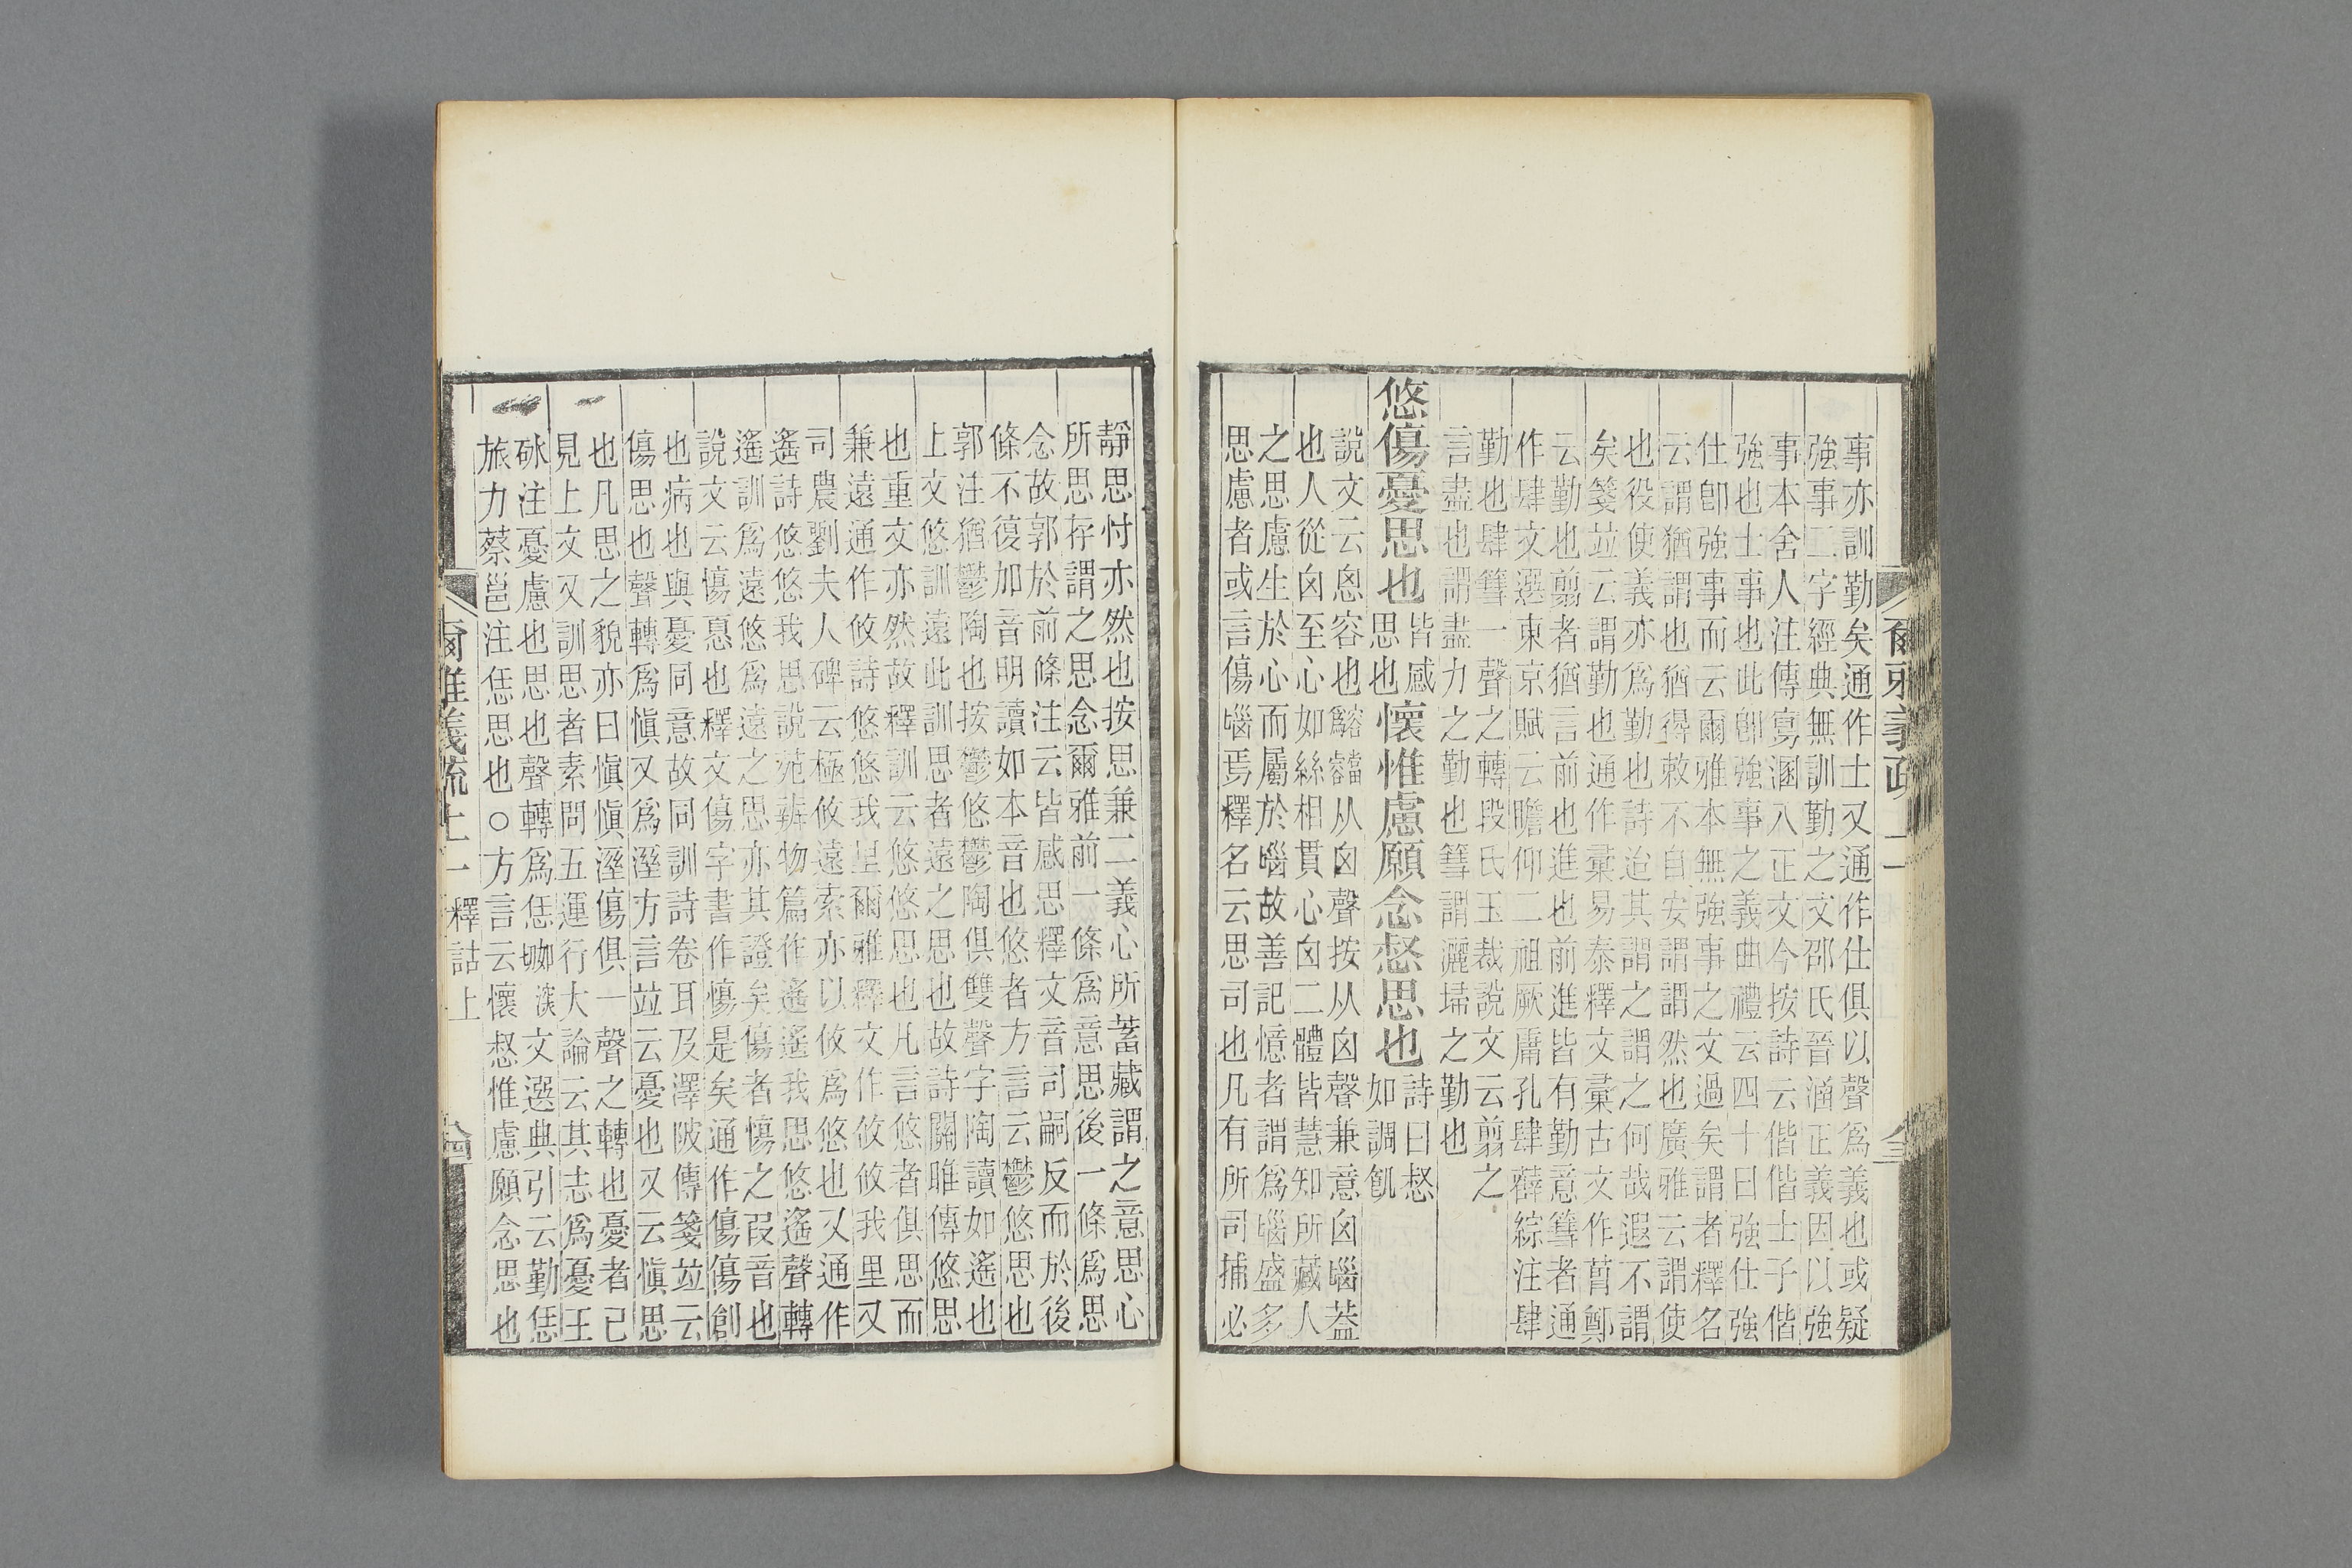 事亦訓勤矣通作士又通作仕俱以聲爲義也或疑
強事二字經典無訓勤之文邵氏晉涵正義因以強
事本舍人注傳寫溷入正文今按詩云偕偕士子偕
強也士事也此卽強事之義曲禮云四十曰強仕強
仕卽強事而云爾雅本無強事之文過矣謂者釋名
云謂猶謂也猶得敕不自安謂謂然也廣雅云謂使
也役使義亦爲勤也詩迨其謂之謂之何哉遐不謂
矣箋竝云謂勤也通作彙易泰釋文彙古文作𦳢鄭
云勤也翦者猶言前也進也前進皆有勤意篲者通
作肆文選東京賦云瞻仰二祖厥庸孔肆薛綜注肆
勤也肆篲一聲之轉段氏玉裁說文云翦之
言盡也謂盡力之勤也篲謂灑埽之勤也
悠傷憂思也皆感思也懷惟慮願念惄思也詩曰惄如調飢
說文云恖容也爲容當睿从囟聲按从囟聲兼意囟𡿺葢
也人從囟至心如絲相貫心囟二體皆慧知所藏人
之思慮生於心而屬於𡿺故善記憶者謂爲𡿺盛多
思慮者或言傷𡿺焉釋名云思司也凡有所司捕必
靜思忖亦然也按思兼二義心所蓄藏謂之意思心
所思存謂之思念爾雅前一條爲意思後一條爲思
念故郭於前條注云皆感思釋文音司嗣反而於後
條不復加音明讀如本音也悠者方言云鬱悠思也
郭注猶鬱陶也按鬱悠鬱陶俱雙聲字陶讀如遙也
上文悠訓遠此訓思者遠之思也故詩關雎傳悠思
也重文亦然故釋訓云悠悠思也凡言悠者俱思而
兼遠通作攸詩悠悠我里爾雅釋文作攸攸我里又
司農劉夫人碑云極攸遠索亦以攸爲悠也又通作
遙詩悠悠我思說苑辨物篇作遙遙我思悠遙聲轉
遙訓爲遠悠爲遠之思亦其證矣傷者慯之叚音也
說文云慯惪也釋文傷字書作慯是矣通作傷傷創
也病也與憂同意故同訓詩卷耳及澤陂傳箋竝云
傷思也聲轉爲愼又爲溼方言竝云憂也又云愼思
也凡思之貌亦曰愼愼溼傷俱一聲之轉也憂者已
見上文又訓思者素問五運行大論云其志爲憂王
砅注憂慮也思也聲轉爲恁文選典引云勤恁
旅力蔡邕注恁思也○方言云懷惄惟慮願念思也
爾雅義疏上一 釋詁上